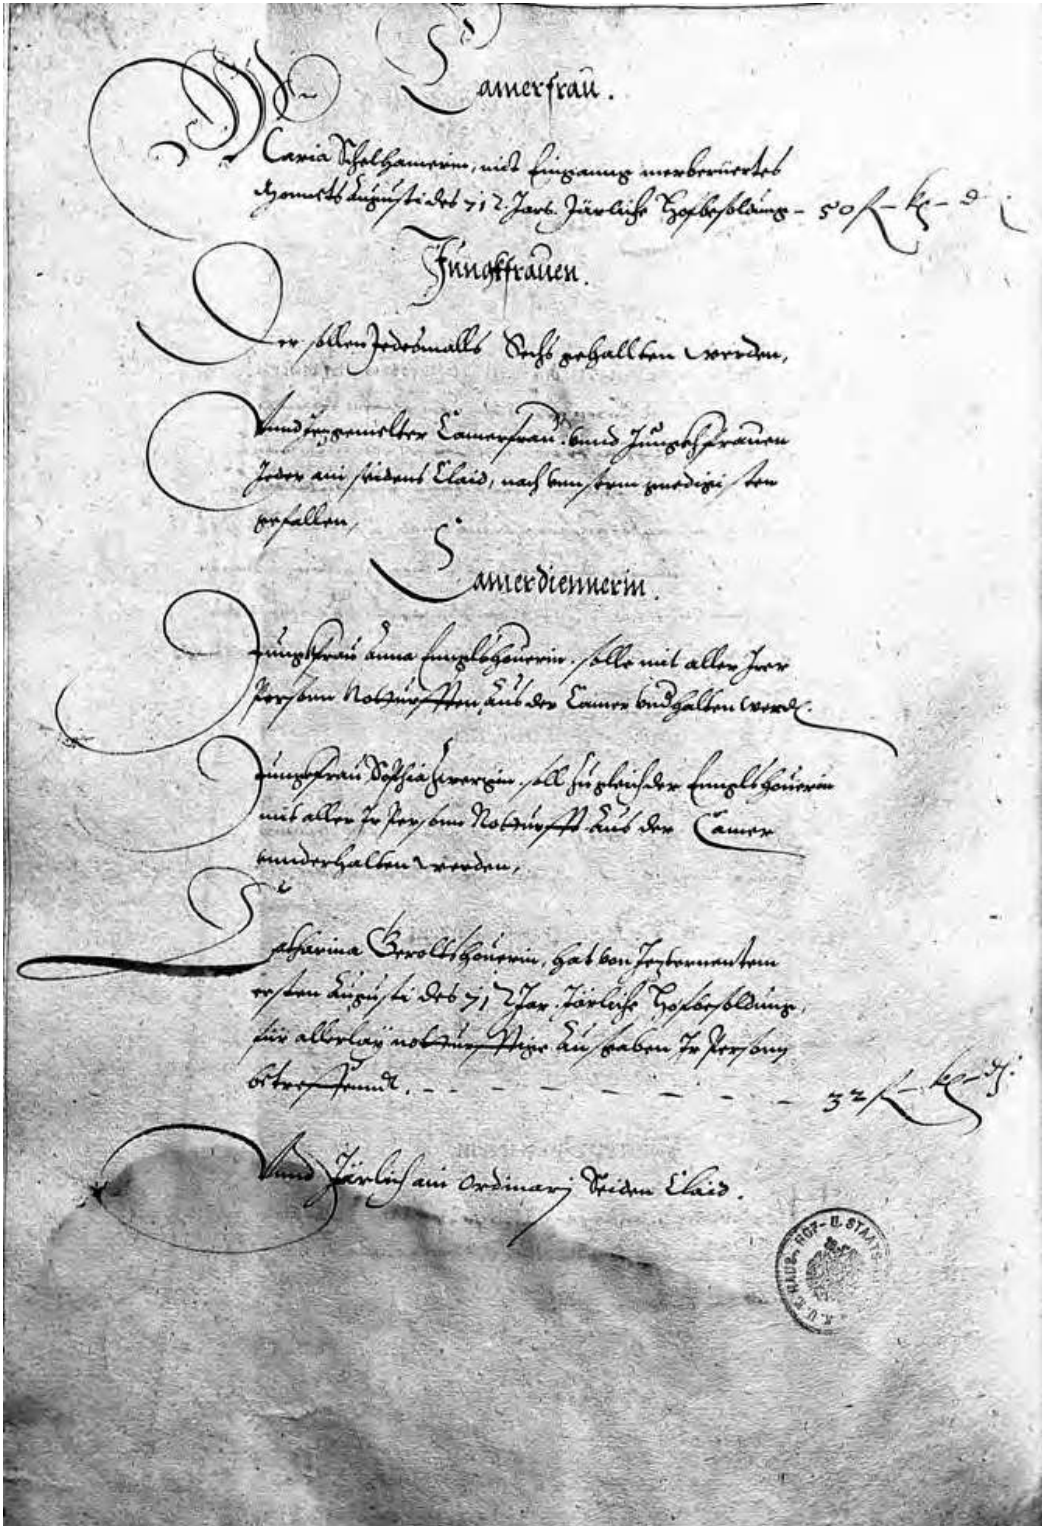 Camerfrau.
Maria Schelhamerin, mit Einganng merberuertes
Monnets Augusti des 71 Jars. Järliche Hofbesoldung – 50 fl – kr – d
Jungkfrauen.
Der sollen Jedesmalls Sechs gehallten werden,
Vnnd yezgemelter Camerfrau. vnnd Jungkhfrauen
Jeder ain seidens Claid, nach vnnserm genedigisten
gefallen,
Camerdiennerin.
Jungkfrau Anna Ennglshouerin. solle mit aller Irer
Person Notturfften aus der Camer vndhalten werd.
Jungkfrau Sophia soll zugleich der Ennglshouerin
mit aller Ir Person Notturfft aus der Camer
vnnderhalten werden,
Catharina Geroltshouerin, hat von Jezbernentem
ersten Augusti des 71 Jar. Järliche Hofbesoldung,
für allerlay notturfftige Ausgaben Ir Person
betreffenndt. – – – – – – 32 fl – kr – d.
Vnnd Järlich ain ordinarj Seiden Claid.
K. U. K. HAUS-, HOF- U. STAATS